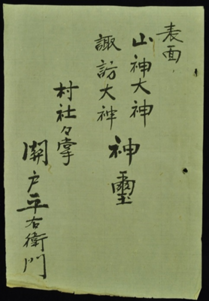 表面
山神大神
諏訪大神
神璽
村社々掌
関戸平右衛門